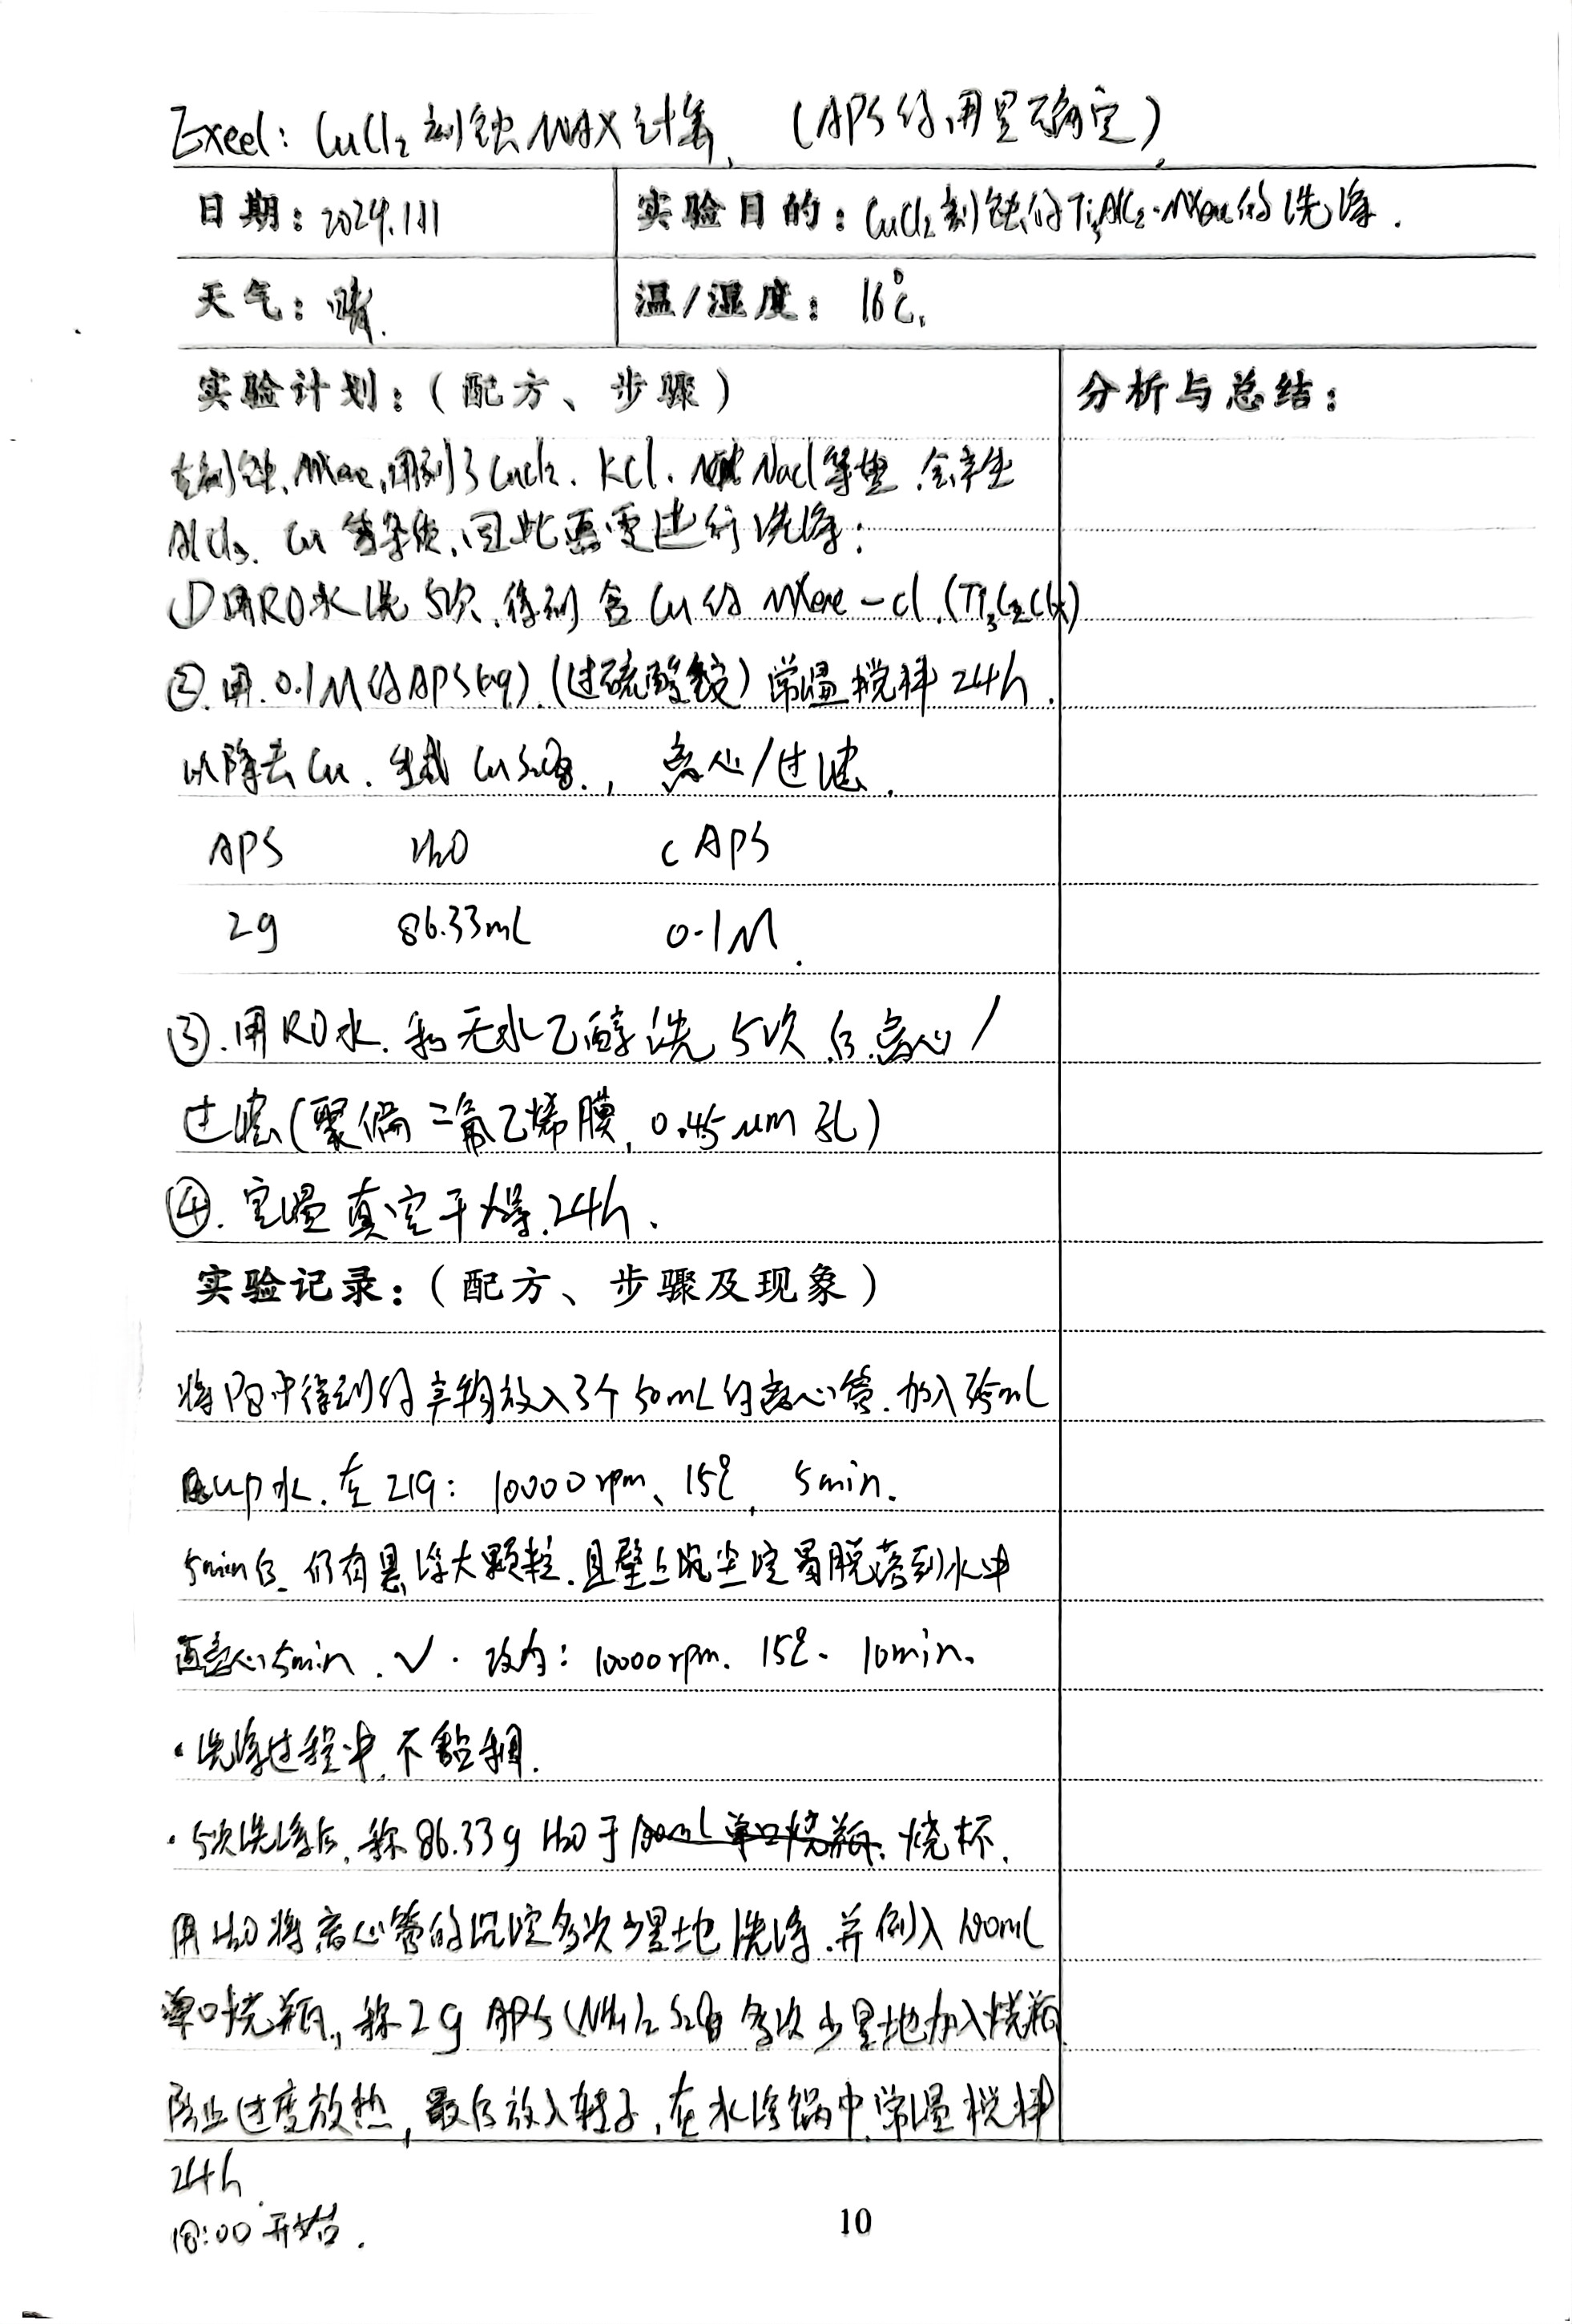 Excel: CuCl2 刻蚀 MAX 计算, (APS的用量确定)
日期: 2024.1.11 实验目的: CuCl2 刻蚀的Ti3AlC2-MXene的洗涤.
天气: 晴. 温/湿度: 16℃.
实验计划:(配方、步骤) 分析与总结:
刻蚀 MXene, 用到了CuCl2、KCl、NaCl等盐, 会产生
AlCl3、Cu 等杂质, 因此需要进行洗涤:
①用RO水洗 5次, 得到 含 Cu 的 MXene-cl. (Ti3C2Clx)
②. 用. 0.1M的APS(aq). (过硫酸铵) 常温搅拌 24h.
以除去Cu. 生成 CuS2O8., 离心/过滤.
APS H2O c APS
2g 86.33mL 0.1M.
③. 用RO水. 和无水乙醇洗 5次 后. 离心/
过滤(聚偏二氟乙烯膜, 0.45 um 孔)
④. 室温真空干燥. 24h.
实验记录:(配方、步骤及现象)
将P8中得到的产物放入3个50mL的离心管. 加入35mL
UP水. 在 219: 10000rpm、15℃, 5min.
5min后. 仍有悬浮大颗粒. 且壁上沉淀易脱落到水中
再离心5min. √. 改为: 10000rpm. 15℃. 10min.
·洗涤过程中, 不黏稠.
·5次洗涤后, 称86.33g H2O于100mL 单口烧瓶. 烧杯.
用H2O将离心管的沉淀多次少量地洗涤. 并倒入100mL
单口烧瓶., 称2g APS (NH4)2S2O8 多次少量地加入烧瓶
防止过度放热, 最后放入转子, 在水浴锅中, 常温搅拌
24h.
18:00 开始.
10